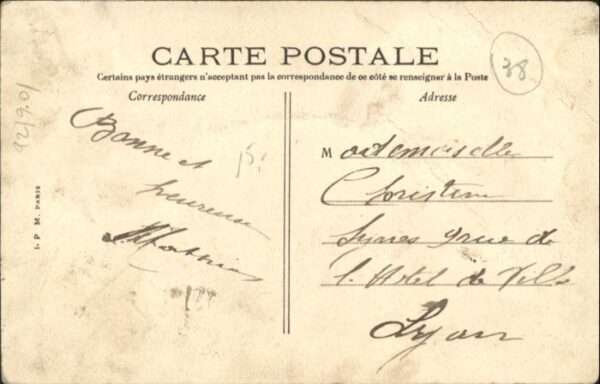 CARTE POSTALE
Certains pays étrangers n'acceptant pas la correspondance de ce côté se renseigner à la Poste
38
Correspondance
Adresse
Bonne et
heureuse
Mademoiselle
Christine
rue de
l'Hotel de Ville
Lyon
I. P. M. PARIS